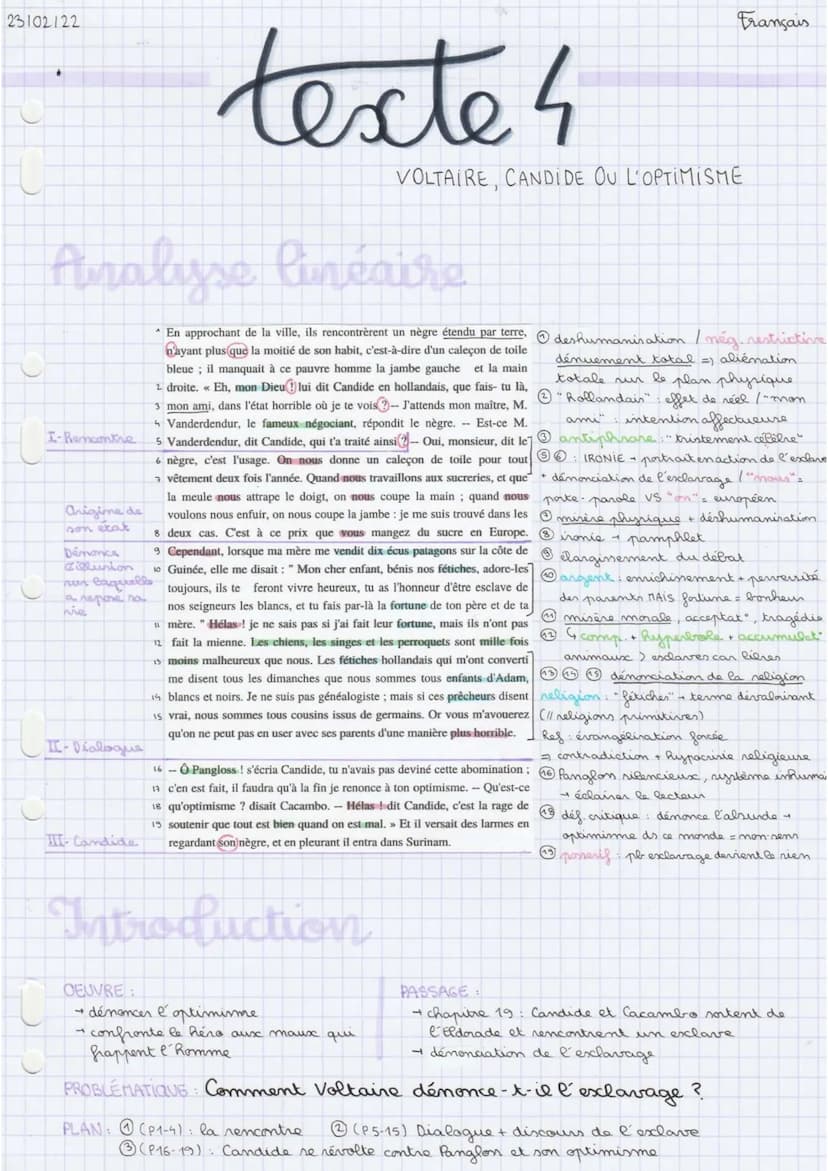 23/02/22
Français
texte 4
VOLTAIRE, CANDIDE OU L'OPTIMISME
Analyse linéaire
1 En approchant de la ville, ils rencontrèrent un nègre étendu par terre,
n'ayant plus que la moitié de son habit, c'est-à-dire d'un caleçon de toile
bleue ; il manquait à ce pauvre homme la jambe gauche et la main
2 droite. « Eh, mon Dieu ! lui dit Candide en hollandais, que fais- tu là,
3 mon ami, dans l'état horrible où je te vois ? -- J'attends mon maître, M.
4 Vanderdendur, le fameux négociant, répondit le nègre. -- Est-ce M.
5 Vanderdendur, dit Candide, qui t'a traité ainsi ? -- Oui, monsieur, dit le
6 nègre, c'est l'usage. On nous donne un caleçon de toile pour tout
7 vêtement deux fois l'année. Quand nous travaillons aux sucreries, et que
la meule nous attrape le doigt, on nous coupe la main ; quand nous
voulons nous enfuir, on nous coupe la jambe : je me suis trouvé dans les
8 deux cas. C'est à ce prix que vous mangez du sucre en Europe.
9 Cependant, lorsque ma mère me vendit dix écus patagons sur la côte de
10 Guinée, elle me disait : " Mon cher enfant, bénis nos fétiches, adore-les
toujours, ils te feront vivre heureux, tu as l'honneur d'être esclave de
nos seigneurs les blancs, et tu fais par-là la fortune de ton père et de ta
11 mère. " Hélas ! je ne sais pas si j'ai fait leur fortune, mais ils n'ont pas
12 fait la mienne. Les chiens, les singes et les perroquets sont mille fois
13 moins malheureux que nous. Les fétiches hollandais qui m'ont converti
me disent tous les dimanches que nous sommes tous enfants d'Adam,
14 blancs et noirs. Je ne suis pas généalogiste ; mais si ces prêcheurs disent
15 vrai, nous sommes tous cousins issus de germains. Or vous m'avouerez
qu'on ne peut pas en user avec ses parents d'une manière plus horrible.
16 -- Ô Pangloss ! s'écria Candide, tu n'avais pas deviné cette abomination ;
17 c'en est fait, il faudra qu'à la fin je renonce à ton optimisme. -- Qu'est-ce
18 qu'optimisme ? disait Cacambo. -- Hélas ! dit Candide, c'est la rage de
19 soutenir que tout est bien quand on est mal. » Et il versait des larmes en
regardant son nègre, et en pleurant il entra dans Surinam.
I - Rencontre
Origine de
son état
Dénonce
l'illusion
sur laquelle
a reposé sa
vie
II - Dialogue
III - Candide
① deshumanisation / nég. restrictive
dénuement total => aliénation
totale sur le plan physique
② "hollandais" : effet de réel / "mon
ami" : intention affectueuse
③ antiphrase : "tristement célèbre"
⑤ ⑥ : IRONIE → portrait en action de l'esclave
+ dénonciation de l'esclavage / "nous" =
porte-parole VS "on" = européen
⑦ misère physique + déshumanisation
⑧ ironie → pamphlet
⑨ élargissement du débat
⑩ argent : enrichissement + perversité
des parents MAIS fortune = bonheur
⑪ misère morale, acceptat°, tragédie
⑫ ↳ comp. + hyperbole + accumulat°
animaux > esclaves car libres
⑬ ⑭ ⑮ dénonciation de la religion
religion : "fétiches" → terme dévalorisant
(// religions primitives)
Ref : évangélisation forcée
=> contradiction + hypocrisie religieuse
⑯ Panglon silencieux, système inhumai
→ éclairer le lecteur
⑱ déf. critique : dénonce l'absurde →
optimisme ds ce monde = non-sens
⑲ possessif : pb esclavage devient le sien
Introduction
OEUVRE :
→ dénoncer l'optimisme
→ confronte le héro aux maux qui
frappent l'Homme
PASSAGE :
→ chapitre 19 : Candide et Cacambo sortent de
l'Eldorado et rencontrent un esclave
→ dénonciation de l'esclavage
PROBLÉMATIQUE : Comment Voltaire dénonce-t-il l'esclavage ?
PLAN : ① (P1-4) : la rencontre ② (P5-15) Dialogue + discours de l'esclave
③ (P16-19) : Candide se révolte contre Panglon et son optimisme